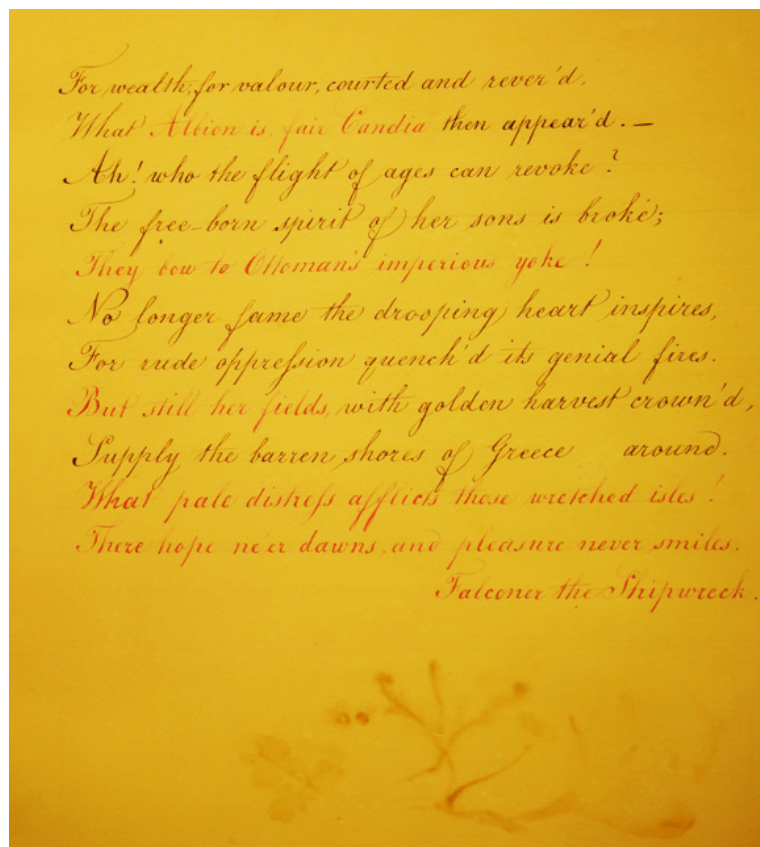 For wealth, for valour, courted and rever'd,
What Albion is, fair Candia then appear'd. —
Ah! who the flight of ages can revoke?
The free-born spirit of her sons is broke;
They bow to Ottoman's imperious yoke!
No longer fame the drooping heart inspires,
For rude oppreſsion quench'd its genial fires.
But still her fields, with golden harvest crown'd,
Supply the barren shores of Greece around.
What pale distreſs afflicts those wretched isles!
There hope ne'er dawns, and pleasure never smiles.
Falconer the Shipwreck.